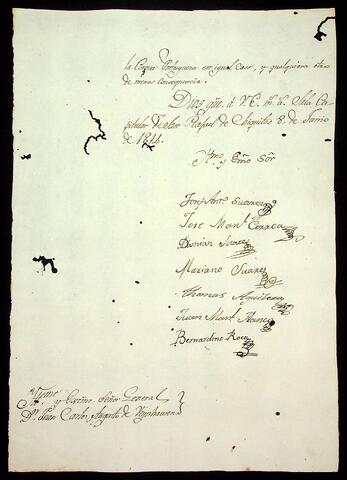 la Corona Portuguesa en igual caso, y qualquiera otra
de menos consequencia.
Dios gũe. á V.E. m.s a.s Sala Ca-
pitular de San Rafael de Chiquitos 8. de Junio
de 1814.
Yltmo y Exmo Sõr
Jose Ant.o Suarez
Jose Man.l Correa
Damian Suarez
Mariano Suarez
Thomas Aguilera
Juan Man.l
Bernardino Roca
Yltmo y Excmo. Señor General
D.n Juan Carlos Augusto de